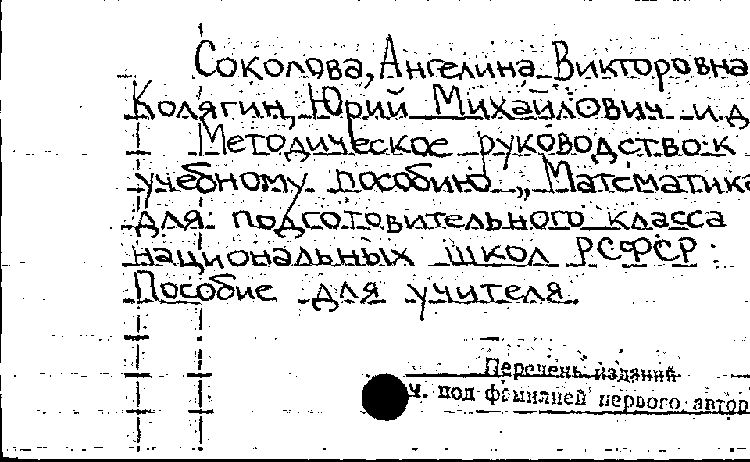 Соколова, Ангелина Викторовна
Колягин, Юрий Михайлович и д
Методическое руководство к
учебному пособию „Математика
для подготовительного класса
национальных школ РСФСР:
Пособие для учителя.
Перечень изданий
под фамилией первого автор